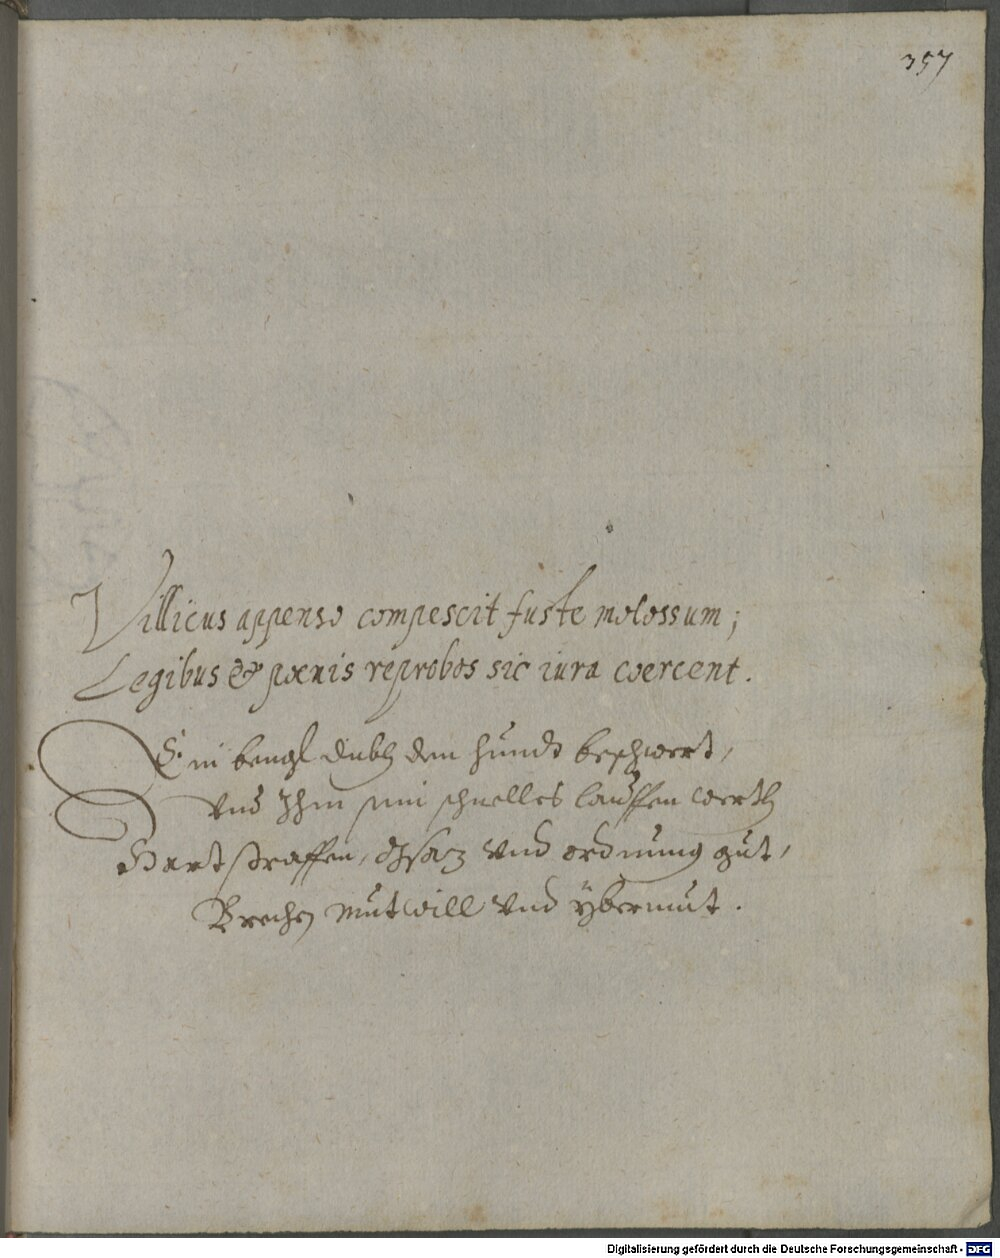 357
Villicus appenso compescit fuste molossum;
Legibus & pœnis reprobos sic iura coercent.
Ein bengl den hundt beschwert,
Vnd Ihm sein schnelles lauffen werth
Hart straffen, gsacz vnd ordnung gut,
Brechen mutwill vnd ÿbermut.
Digitalisierung gefördert durch die Deutsche Forschungsgemeinschaft - DFG